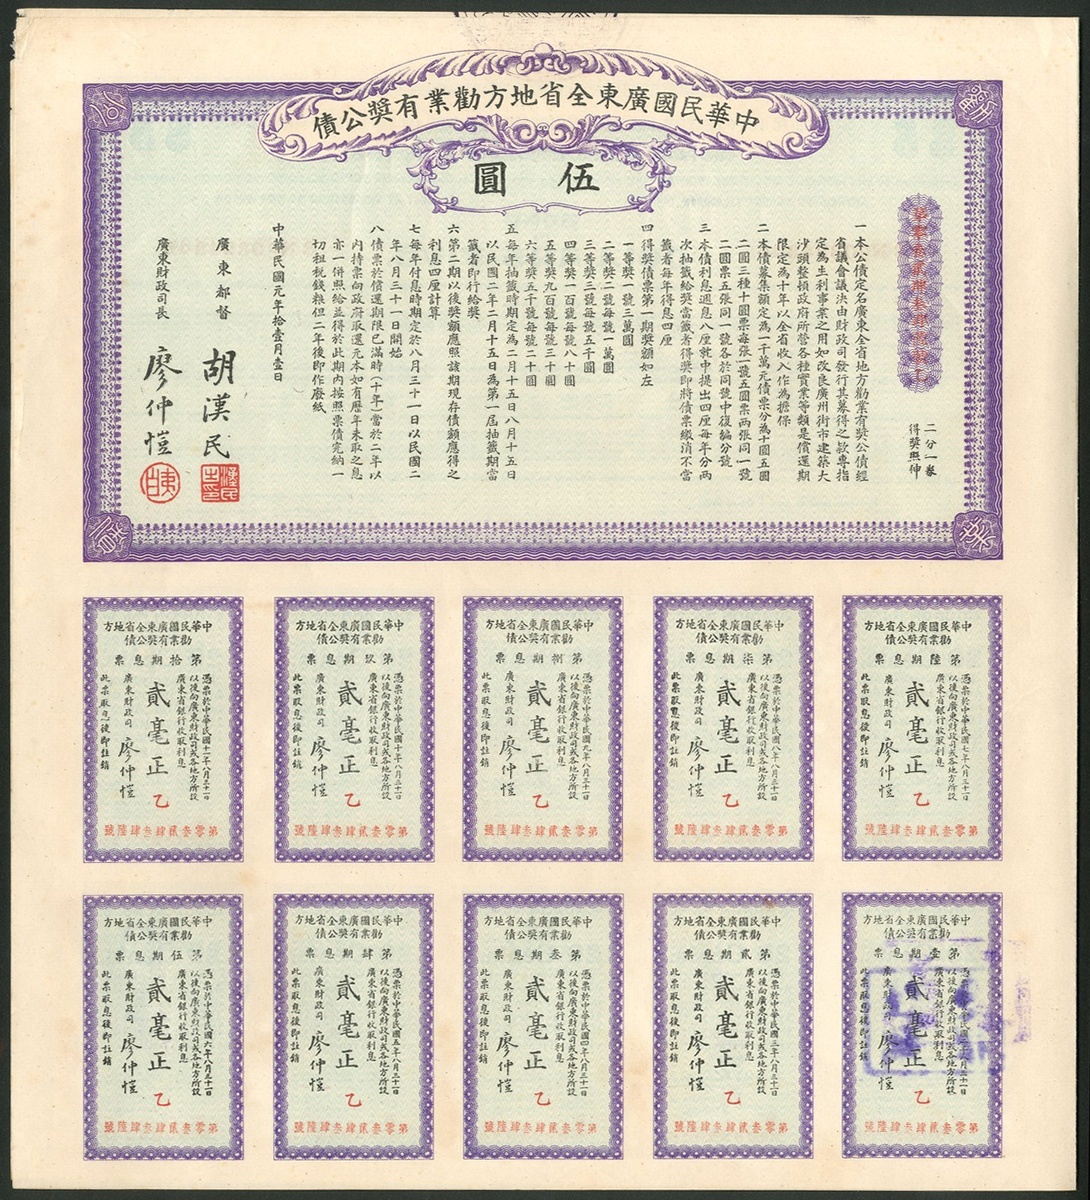 中華民國廣東全省地方勸業有獎公債
伍圓
二分一券
得獎照伸
一本公債定名廣東全省地方勸業有獎公債經
省議會議決由財政司發行其募得之款專指
定為生利事業之用如改良廣州街市建築大
沙頭整頓政府所營各種實業等類是償還期
限定為十年以全省收入作為擔保
二本債募集額定為一千萬元債票分為十圓五圓
二圓三種十圓票每張一號五圓票兩張同一號
二圓票五張同一號各於同號中復編分號
三本債利息週息八厘就中提出四厘每年分兩
次抽籤給獎當籤者得獎即將債票繳消不當
籤者每年得息四厘
四得獎債票第一期獎額如左
一等獎一號三萬圓
二等獎二號每號一萬圓
三等獎三號每號五千圓
四等獎一百號每號八十圓
五等獎九百號每號三十圓
六等獎五千號每號二十圓
五每年抽籤時期定為二月十五日八月十五日
以民國二年二月十五日為第一屆抽籤期當
籤者即行給獎
六第二期以後獎額應照該期現存債額應得之
利息四厘計算
七每年付息時期定於八月三十一日以民國二
年八月三十一日開始
八債票於償還期限已滿時（十年）當於二年以
內持票向政府取還元本如有歷年未取之息
亦一併照給並得於此期內按照票債完納一
切租稅錢粮但二年後即作廢紙
中華民國元年拾壹月壹日
廣東都督 胡漢民
廣東財政司長 廖仲愷
中華民國廣東全省地方
勸業有獎公債
第陸期息票
憑票於中華民國七年八月三十一日
以後向廣東財政司或各地方所設
廣東省銀行收取利息
貳毫正
乙
廣東財政司 廖仲愷
此票取息後即註銷
第零叁貳肆叁肆陸號
中華民國廣東全省地方
勸業有獎公債
第柒期息票
憑票於中華民國八年八月三十一日
以後向廣東財政司或各地方所設
廣東省銀行收取利息
貳毫正
乙
廣東財政司 廖仲愷
此票取息後即註銷
第零叁貳肆叁肆陸號
中華民國廣東全省地方
勸業有獎公債
第捌期息票
憑票於中華民國九年八月三十一日
以後向廣東財政司或各地方所設
廣東省銀行收取利息
貳毫正
乙
廣東財政司 廖仲愷
此票取息後即註銷
第零叁貳肆叁肆陸號
中華民國廣東全省地方
勸業有獎公債
第玖期息票
憑票於中華民國十年八月三十一日
以後向廣東財政司或各地方所設
廣東省銀行收取利息
貳毫正
乙
廣東財政司 廖仲愷
此票取息後即註銷
第零叁貳肆叁肆陸號
中華民國廣東全省地方
勸業有獎公債
第拾期息票
憑票於中華民國十一年八月三十一日
以後向廣東財政司或各地方所設
廣東省銀行收取利息
貳毫正
乙
廣東財政司 廖仲愷
此票取息後即註銷
第零叁貳肆叁肆陸號
中華民國廣東全省地方
勸業有獎公債
第壹期息票
憑票於中華民國
以後向廣東財政司或各地方所設
廣東省銀行收取利息
貳毫正
乙
廣東財政司 廖仲愷
此票取息後即註銷
第零叁貳肆叁肆陸號
中華民國廣東全省地方
勸業有獎公債
第貳期息票
憑票於中華民國三年八月三十一日
以後向廣東財政司或各地方所設
廣東省銀行收取利息
貳毫正
乙
廣東財政司 廖仲愷
此票取息後即註銷
第零叁貳肆叁肆陸號
中華民國廣東全省地方
勸業有獎公債
第叁期息票
憑票於中華民國四年八月三十一日
以後向廣東財政司或各地方所設
廣東省銀行收取利息
貳毫正
乙
廣東財政司 廖仲愷
此票取息後即註銷
第零叁貳肆叁肆陸號
中華民國廣東全省地方
勸業有獎公債
第肆期息票
憑票於中華民國五年八月三十一日
以後向廣東財政司或各地方所設
廣東省銀行收取利息
貳毫正
乙
廣東財政司 廖仲愷
此票取息後即註銷
第零叁貳肆叁肆陸號
中華民國廣東全省地方
勸業有獎公債
第伍期息票
憑票於中華民國六年八月三十一日
以後向廣東財政司或各地方所設
廣東省銀行收取利息
貳毫正
乙
廣東財政司 廖仲愷
此票取息後即註銷
第零叁貳肆叁肆陸號